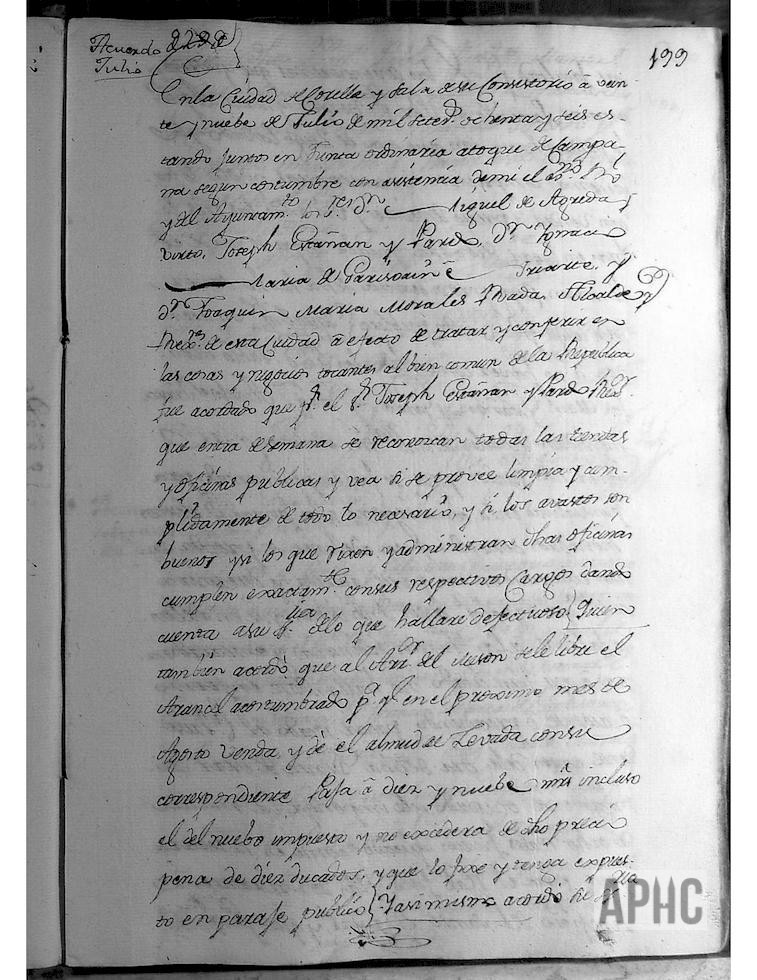 Acuerdo de 29 de
Julio
199
En la Ciudad de Corella y Sala de su Consistorio â vein-
te y nuebe de Julio de mil setez.^s ochenta y seis es-
tando juntos en Junta ordinaria atoque de Campa-
na segun costumbre con asistencia de mi el ess.^no R.^l
y del Ayuntam.^to los S.^res D.^n Miguel de Agreda y
Virto, Joseph Estañan y Pardo, D.^n Ygnacio
Maria de Parisoaiñ Yriarte, y
D.^n Joaquin Maria Morales Rada, Alcalde y
Rex.^res de esta Ciudad â efecto de tratar y conferir en
las cosas y negocios tocantes al bien comun de la Republica
fue acordado que p.^r el S.^r Joseph Estañan y Pardo Rex.^or
que entra de semana se reconozcan todas las tiendas
y oficinas publicas y vea si se provee limpia y cum-
plidamente de todo lo necesario, y si los avastos son
buenos y si los que rixen y administran dhas oficinas
cumplen exactam.^te con sus respectivos Cargos dando
cuenta a su S.^ria de lo que hallare defectuoso
tambien acordó que al Arr.^or del Meson se le libre el
Arancel acostumbrado p.^a q.^e en el proximo mes de
Agosto venda y dé el almud de Zevada con su
correspondiente Paja â diez y nuebe mrs incluso
el del nuebo impuesto y no excedera de dho precio
pena de diez ducados, y que lo fixe y tenga expues-
to en paraje publico Yasimismo acordó su S.^ria
APHC